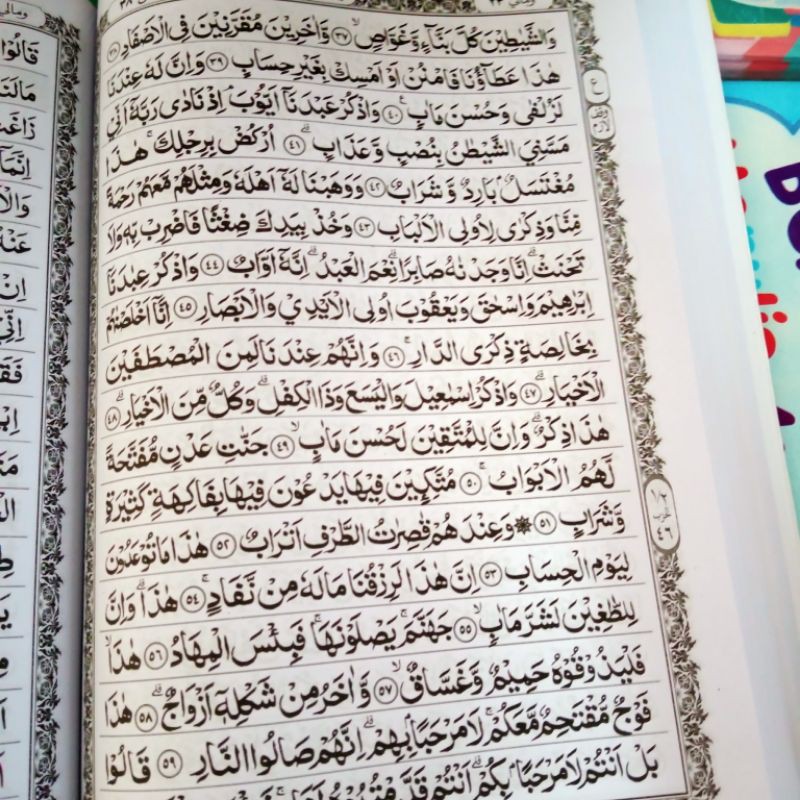 وَالشَّيٰطِيْنَ كُلَّ بَنَّاۤءٍ وَّغَوَّاصٍۙ ٣٧ وَّاٰخَرِيْنَ مُقَرَّنِيْنَ فِى الْاَصْفَادِ ٣٨
هٰذَا عَطَاۤؤُنَا فَامْنُنْ اَوْ اَمْسِكْ بِغَيْرِ حِسَابٍ ٣٩ وَاِنَّ لَهٗ عِنْدَنَا
لَزُلْفٰى وَحُسْنَ مَاٰبٍ ࣖ ٤٠ وَاذْكُرْ عَبْدَنَآ اَيُّوْبَۘ اِذْ نَادٰى رَبَّهٗٓ اَنِّيْ
مَسَّنِيَ الشَّيْطٰنُ بِنُصْبٍ وَّعَذَابٍۗ ٤١ اُرْكُضْ بِرِجْلِكَۚ هٰذَا
مُغْتَسَلٌۢ بَارِدٌ وَّشَرَابٌ ٤٢ وَوَهَبْنَا لَهٗٓ اَهْلَهٗ وَمِثْلَهُمْ مَّعَهُمْ رَحْمَةً
مِّنَّا وَذِكْرٰى لِاُولِى الْاَلْبَابِ ٤٣ وَخُذْ بِيَدِكَ ضِغْثًا فَاضْرِبْ بِّهٖ وَلَا
تَحْنَثْۗ اِنَّا وَجَدْنٰهُ صَابِرًاۗ نِعْمَ الْعَبْدُۗ اِنَّهٗٓ اَوَّابٌ ٤٤ وَاذْكُرْ عِبٰدَنَآ
اِبْرٰهِيْمَ وَاِسْحٰقَ وَيَعْقُوْبَ اُولِى الْاَيْدِيْ وَالْاَبْصَارِ ٤٥ اِنَّآ اَخْلَصْنٰهُمْ
بِخَالِصَةٍ ذِكْرَى الدَّارِۚ ٤٦ وَاِنَّهُمْ عِنْدَنَا لَمِنَ الْمُصْطَفَيْنَ
الْاَخْيَارِۗ ٤٧ وَاذْكُرْ اِسْمٰعِيْلَ وَالْيَسَعَ وَذَا الْكِفْلِۗ وَكُلٌّ مِّنَ الْاَخْيَارِۗ ٤٨
هٰذَا ذِكْرٌۗ وَاِنَّ لِلْمُتَّقِيْنَ لَحُسْنَ مَاٰبٍۙ ٤٩ جَنّٰتِ عَدْنٍ مُّفَتَّحَةً
لَّهُمُ الْاَبْوَابُۚ ٥٠ مُتَّكِـِٕيْنَ فِيْهَا يَدْعُوْنَ فِيْهَا بِفَاكِهَةٍ كَثِيْرَةٍ
وَّشَرَابٍ ٥١ ۞ وَعِنْدَهُمْ قٰصِرٰتُ الطَّرْفِ اَتْرَابٌ ٥٢ هٰذَا مَا تُوْعَدُوْنَ
لِيَوْمِ الْحِسَابِ ٥٣ اِنَّ هٰذَا لَرِزْقُنَا مَا لَهٗ مِنْ نَّفَادٍۚ ٥٤ هٰذَاۗ وَاِنَّ
لِلطّٰغِيْنَ لَشَرَّ مَاٰبٍۙ ٥٥ جَهَنَّمَۚ يَصْلَوْنَهَاۚ فَبِئْسَ الْمِهَادُ ٥٦ هٰذَاۙ
فَلْيَذُوْقُوْهُ حَمِيْمٌ وَّغَسَّاقٌۙ ٥٧ وَّاٰخَرُ مِنْ شَكْلِهٖٓ اَزْوَاجٌۗ ٥٨ هٰذَا
فَوْجٌ مُّقْتَحِمٌ مَّعَكُمْۚ لَا مَرْحَبًاۢ بِهِمْۗ اِنَّهُمْ صَالُوا النَّارِ ٥٩ قَالُوْا
بَلْ اَنْتُمْ لَا مَرْحَبًاۢ بِكُمْۗ اَنْتُمْ قَدَّمْتُمُوْهُ لَنَاۚ